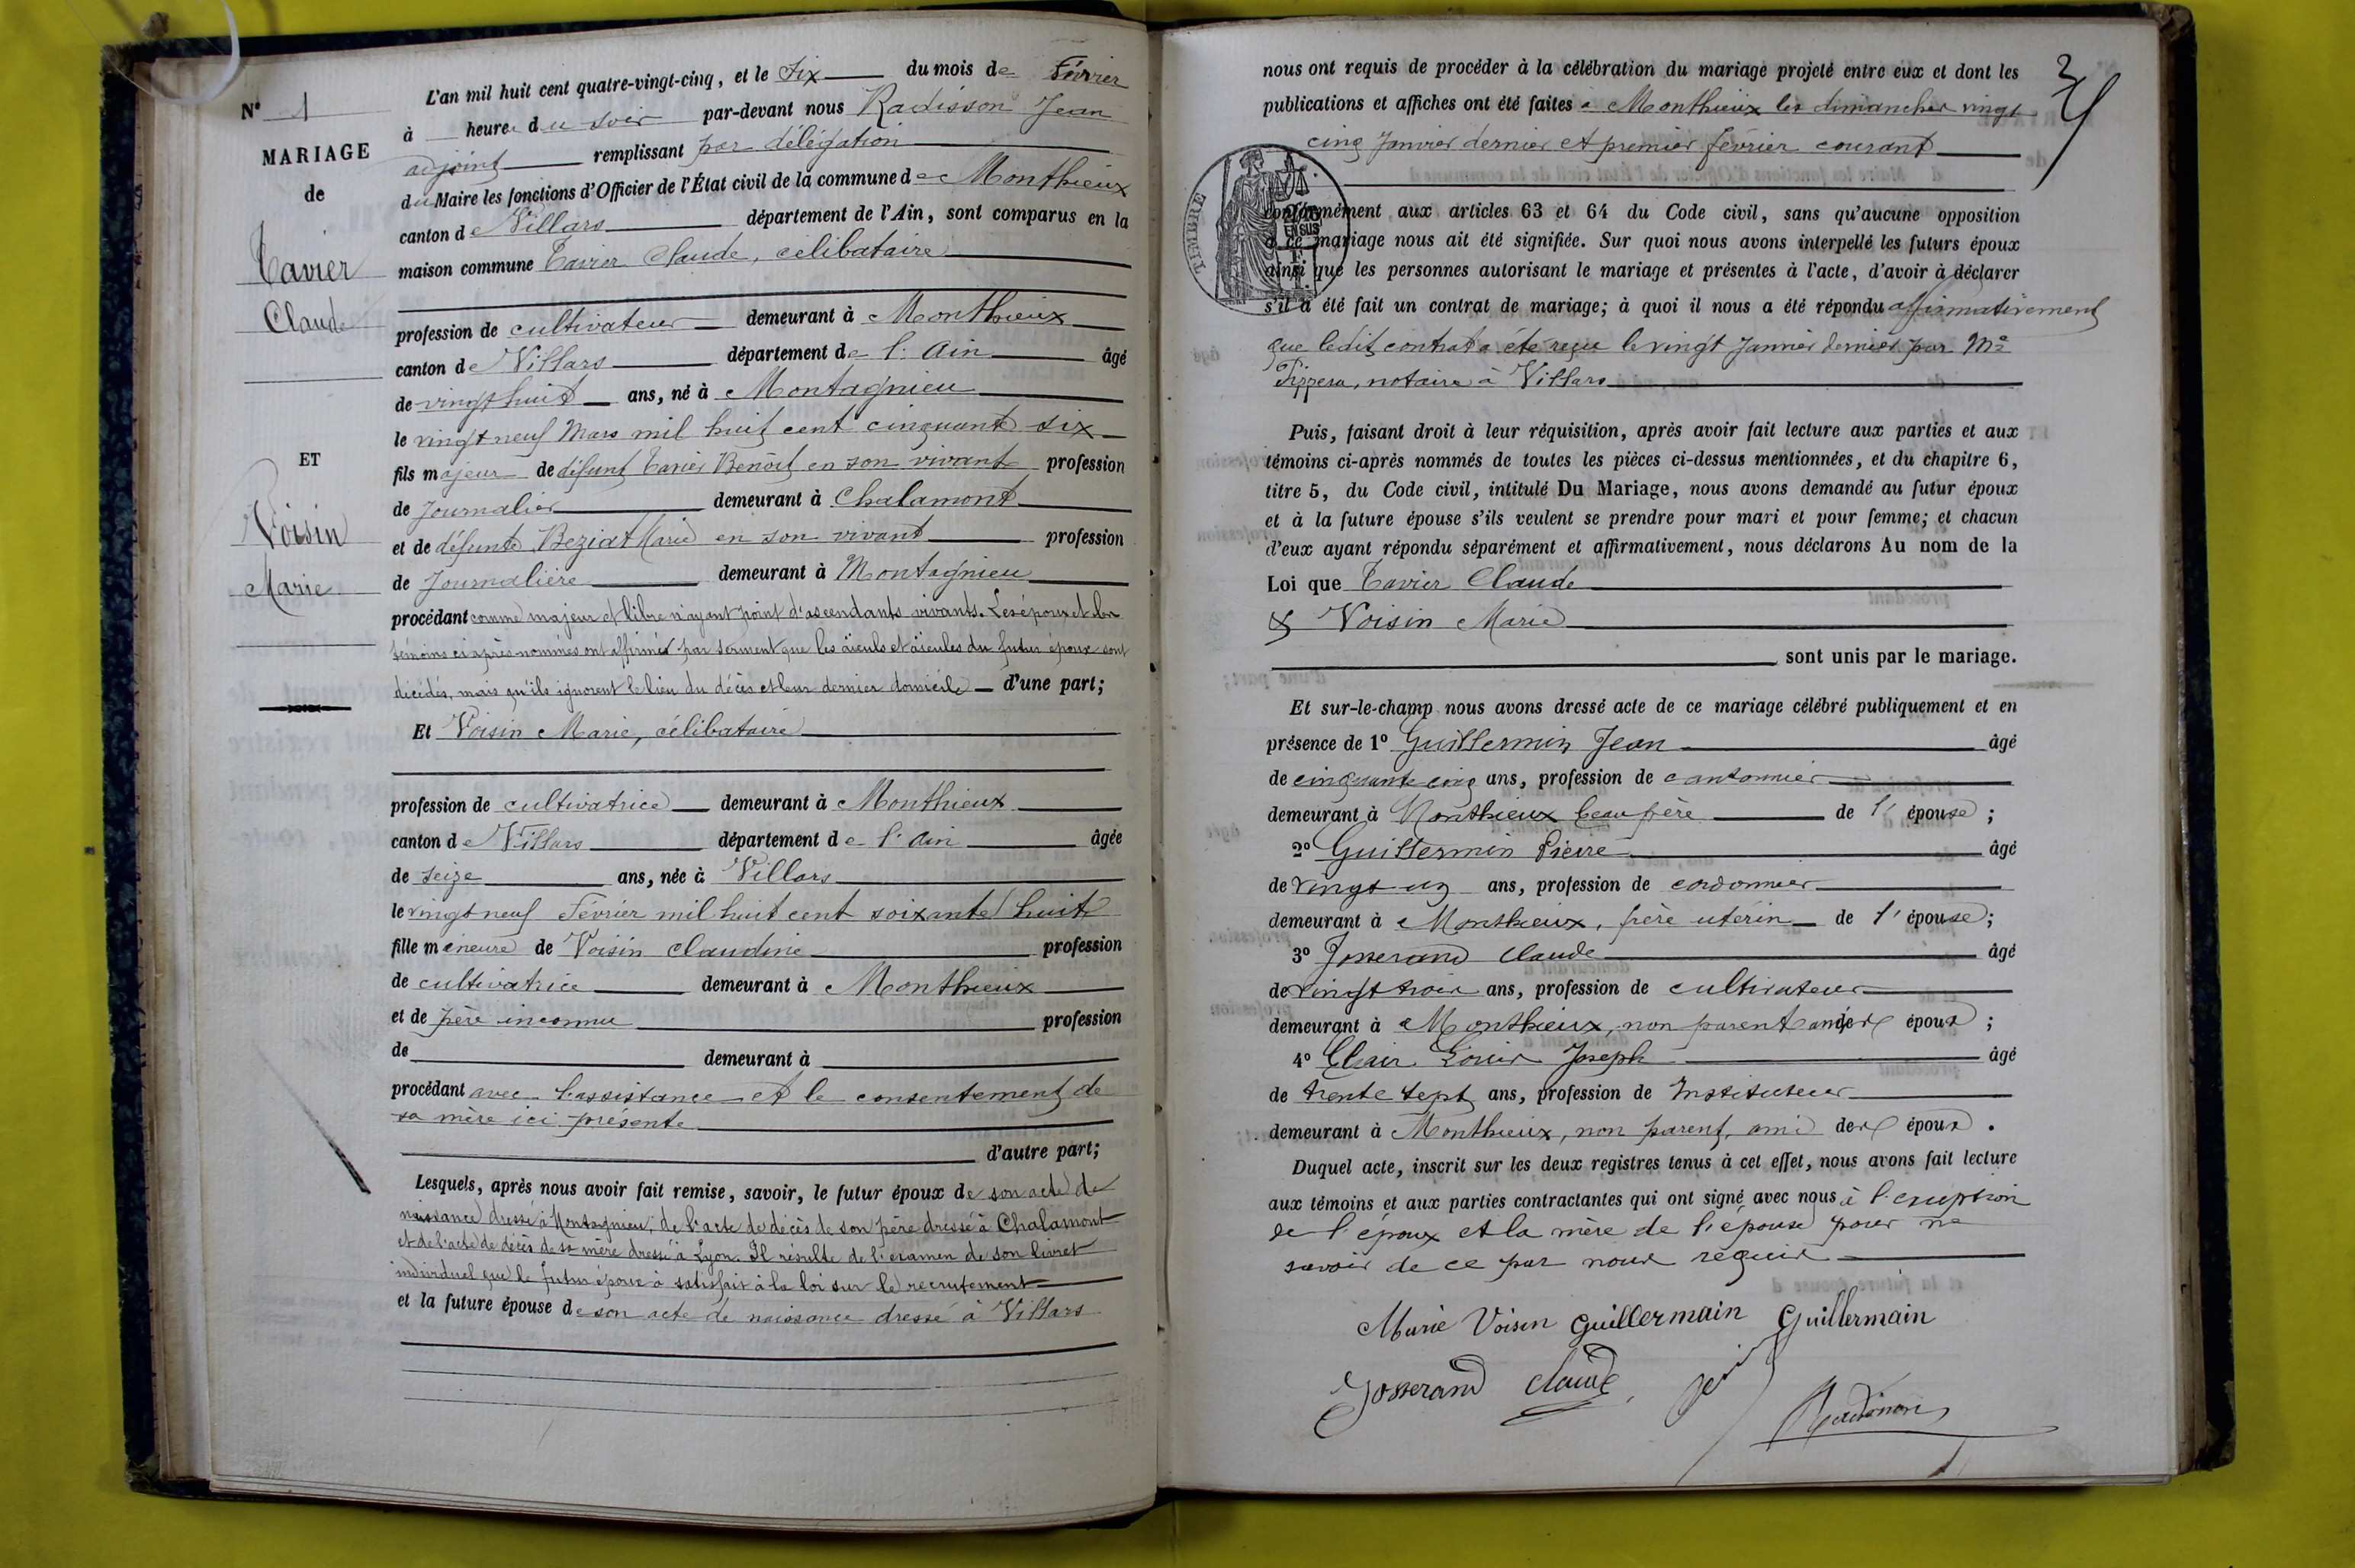 N° 1
MARIAGE
de
Tavier
Claude
ET
Voisin
Marie
L'an mil huit cent quatre-vingt-cinq, et le Six du mois de Février
à heure du soir par-devant nous Radisson Jean
adjoint remplissant par délégation
du Maire les fonctions d'Officier de l'État civil de la commune de Monthieux
canton de Villars département de l'Ain, sont comparus en la
maison commune Tavier Claude, célibataire
profession de cultivateur demeurant à Monthieux
canton de Villars département de l'Ain âgé
de vingt huit ans, né à Montagnieu
le vingt neuf Mars mil huit cent cinquante six
fils majeur de défunt Tavier Benoît en son vivant profession
de Journalier demeurant à Chalamont
et de défunte Beziat Marie en son vivant profession
de Journalière demeurant à Montagnieu
procédant comme majeur et libre n'ayant point d'ascendants vivants. Les époux et les
témoins ci-après nommés ont affirmé par serment que les aïeuls et aïeules du futur époux sont
décédés, mais qu'ils ignorent le lieu du décès et leur dernier domicile d'une part;
Et Voisin Marie, célibataire
profession de cultivatrice demeurant à Monthieux
canton de Villars département de l'Ain âgée
de seize ans, née à Villars
le vingt neuf Février mil huit cent soixante huit
fille mineure de Voisin Claudine profession
de cultivatrice demeurant à Monthieux
et de père inconnu profession
de demeurant à
procédant avec l'assistance et le consentement de
sa mère ici présente
d'autre part;
Lesquels, après nous avoir fait remise, savoir, le futur époux de son acte de
naissance dressé à Montagnieu, de l'acte de décès de son père dressé à Chalamont
et de l'acte de décès de sa mère dressé à Lyon. Il résulte de l'examen de son livret
individuel que le futur époux a satisfait à la loi sur le recrutement
et la future épouse de son acte de naissance dressé à Villars
3
nous ont requis de procéder à la célébration du mariage projeté entre eux et dont les
publications et affiches ont été faites à Monthieux les dimanches vingt
cinq Janvier dernier et premier février courant
TIMBRE
conformément aux articles 63 et 64 du Code civil, sans qu'aucune opposition
à ce mariage nous ait été signifiée. Sur quoi nous avons interpellé les futurs époux
ainsi que les personnes autorisant le mariage et présentes à l'acte, d'avoir à déclarer
s'il a été fait un contrat de mariage; à quoi il nous a été répondu affirmativement
que ledit contrat a été reçu le vingt Janvier dernier par Me
notaire à Villars
Puis, faisant droit à leur réquisition, après avoir fait lecture aux parties et aux
témoins ci-après nommés de toutes les pièces ci-dessus mentionnées, et du chapitre 6,
titre 5, du Code civil, intitulé Du Mariage, nous avons demandé au futur époux
et à la future épouse s'ils veulent se prendre pour mari et pour femme; et chacun
d'eux ayant répondu séparément et affirmativement, nous déclarons Au nom de la
Loi que Tavier Claude
& Voisin Marie
sont unis par le mariage.
Et sur-le-champ nous avons dressé acte de ce mariage célébré publiquement et en
présence de 1° Guillermin Jean âgé
de cinquante cinq ans, profession de cantonnier
demeurant à Monthieux beau père de l'épouse;
2° Guillermin Pierre âgé
de vingt un ans, profession de cordonnier
demeurant à Monthieux, frère utérin de l'épouse;
3° Josserand Claude âgé
de vingt trois ans, profession de cultivateur
demeurant à Monthieux, non parent ami des époux;
4° Clair Louis Joseph âgé
de trente sept ans, profession de Instituteur
demeurant à Monthieux, non parent, ami des époux.
Duquel acte, inscrit sur les deux registres tenus à cet effet, nous avons fait lecture
aux témoins et aux parties contractantes qui ont signé avec nous à l'exception
de l'époux et la mère de l'épouse pour ne
savoir de ce par nous requis
Marie Voisin Guillermain Guillermain
Josserand Claude
Radisson